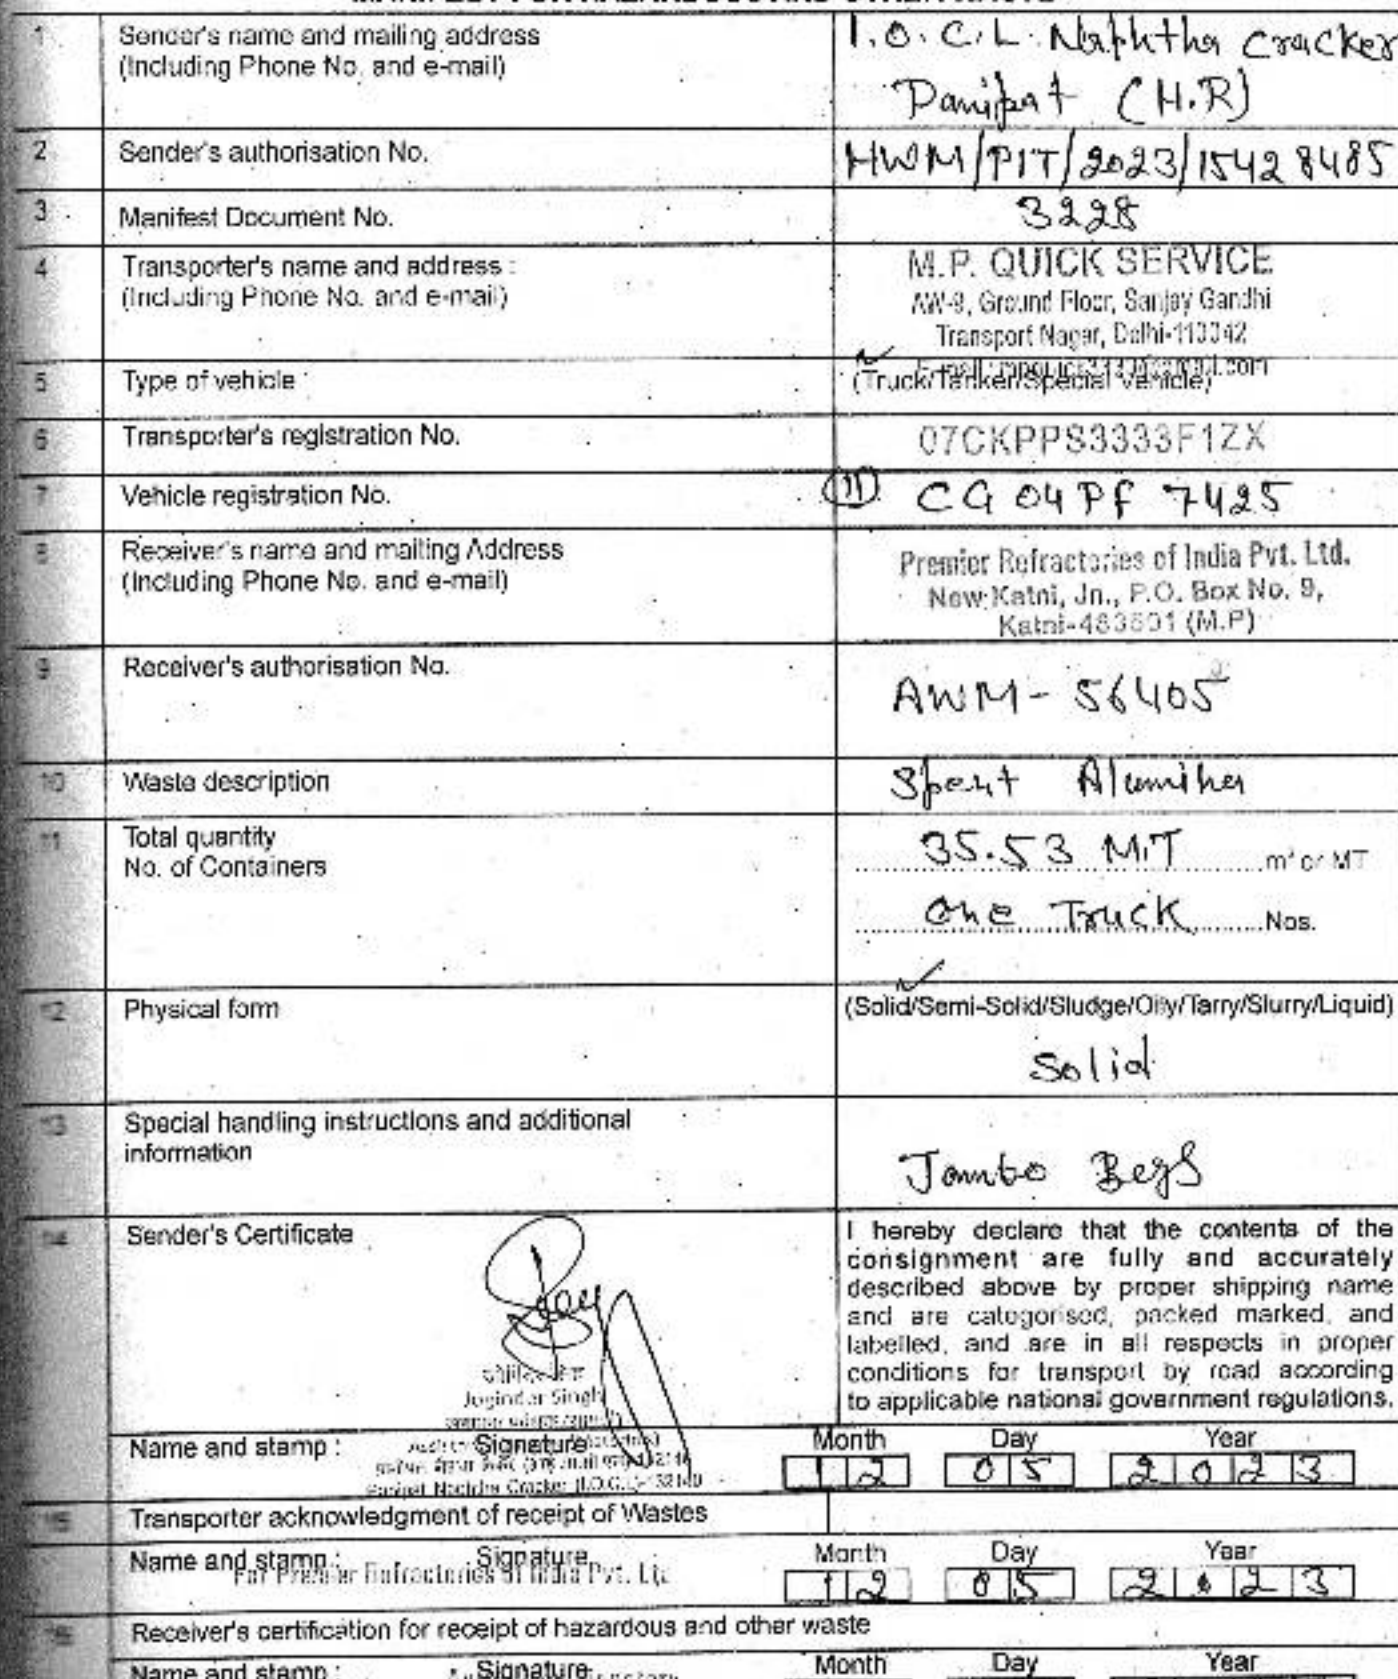 1 Sender's name and mailing address
(Including Phone No. and e-mail)
I.O.C.L. Naphtha Cracker
Panipat (H.R)
2 Sender's authorisation No.
HWM/PIT/2023/15428485
3 Manifest Document No.
3228
4 Transporter's name and address :
(Including Phone No. and e-mail)
M.P. QUICK SERVICE
AW-9, Ground Floor, Sanjay Gandhi
Transport Nagar, Delhi-110042
E-mail :
5 Type of vehicle
(Truck/Tanker/Special Vehicle)
6 Transporter's registration No.
07CKPPS3333F1ZX
7 Vehicle registration No.
CG 04 Pf 7425
8 Receiver's name and mailing Address
(Including Phone No. and e-mail)
Premier Refractories of India Pvt. Ltd.
New Katni, Jn., P.O. Box No. 9,
Katni-483501 (M.P)
9 Receiver's authorisation No.
AWM- 56405
10 Waste description
Spent Alumina
11 Total quantity
No. of Containers
35.53 M.T m³ or MT
One Truck Nos.
12 Physical form
(Solid/Semi-Solid/Sludge/Oily/Tarry/Slurry/Liquid)
Solid
13 Special handling instructions and additional
information
Jambo Begs
14 Sender's Certificate
I hereby declare that the contents of the
consignment are fully and accurately
described above by proper shipping name
and are categorised, packed marked, and
labelled, and are in all respects in proper
conditions for transport by road according
to applicable national government regulations.
Joginder Singh
Name and stamp : Signature Month Day Year
12 05 2023
Panipat Naphtha Cracker (I.O.C.L)-132140
15 Transporter acknowledgment of receipt of Wastes
Name and stamp : Signature Month Day Year
For Premier Refractories of India Pvt. Ltd
12 05 2023
16 Receiver's certification for receipt of hazardous and other waste
Name and stamp : Signature Month Day Year